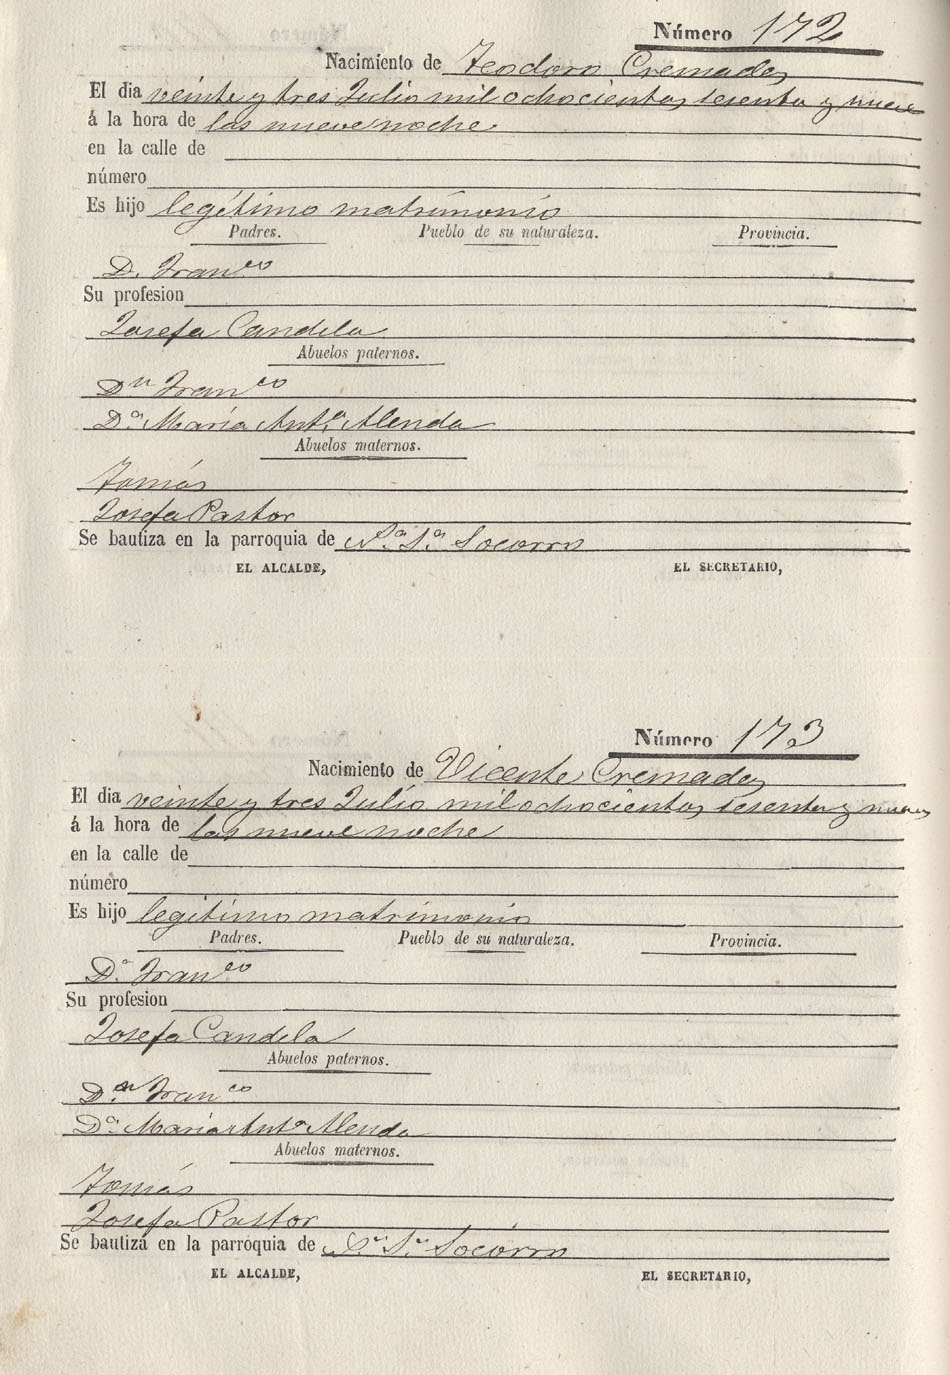 Número 172
Nacimiento de Teodoro Cremades
El dia veinte y tres Julio mil ochocientos sesenta y nueve
á la hora de las nueve noche
en la calle de
número
Es hijo legítimo matrimonio
Padres. Pueblo de su naturaleza. Provincia.
D. Franco
Su profesion
Josefa Candela
Abuelos paternos.
Dn Franco
Da María Anta Alenda
Abuelos maternos.
Tomás
Josefa Pastor
Se bautiza en la parroquia de Na Sa Socorro
EL ALCALDE, EL SECRETARIO,
Número 173
Nacimiento de Vicente Cremades
El dia veinte y tres Julio mil ochocientos sesenta y nueve
á la hora de las nueve noche
en la calle de
número
Es hijo legítimo matrimonio
Padres. Pueblo de su naturaleza. Provincia.
Dn Franco
Su profesion
Josefa Candela
Abuelos paternos.
Dn Franco
Da Maria Anta Alenda
Abuelos maternos.
Tomás
Josefa Pastor
Se bautiza en la parroquia de Na Sa Socorro
EL ALCALDE, EL SECRETARIO,